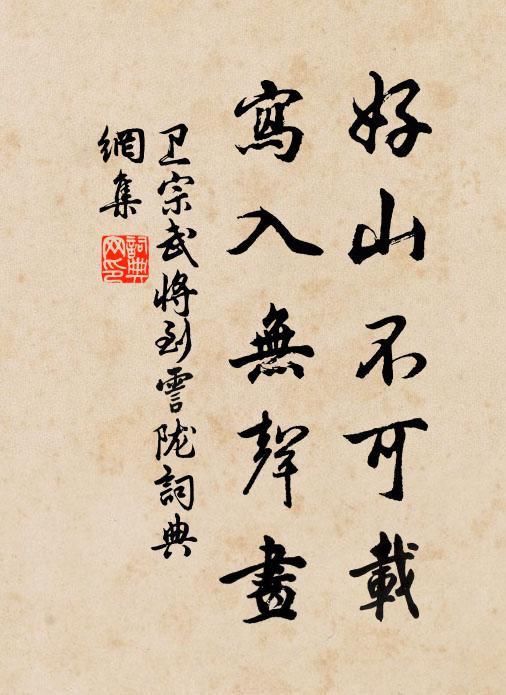 好山不可載
寫入無聲畫
卫宗武將到霅陇詞典
網集
詞典
网印